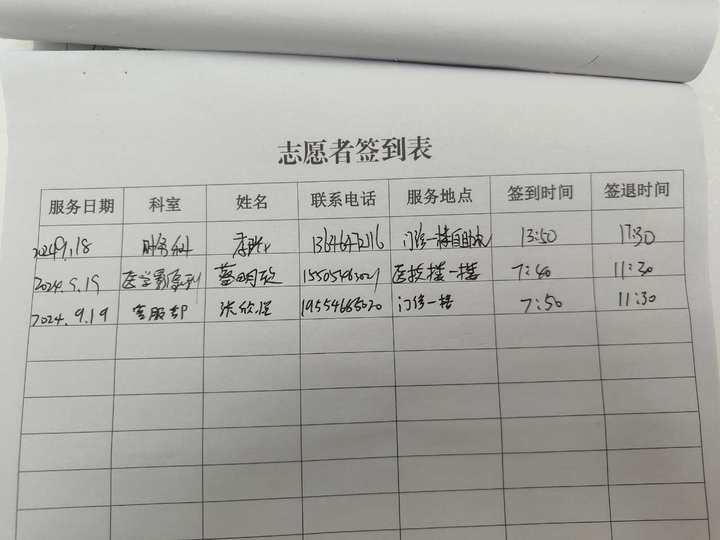 志愿者签到表
服务日期 科室 姓名 联系电话 服务地点 签到时间 签退时间
2024.9.18 财务科 门诊一楼自助机 13:50 17:30
2024.9.19 医学影像科 15505463027 医技楼一楼 7:40 11:30
2024.9.19 客服部 张欣 19554665020 门诊一楼 7:50 11:30